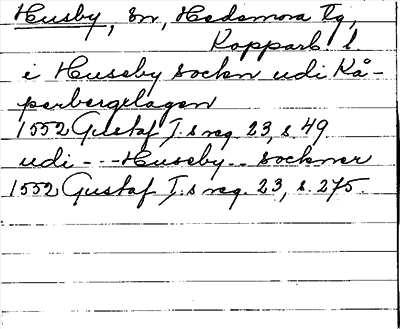 Husby, sn, Hedemora tg,
Kopparb. l
i Huseby sockn udi Kå-
parbergslagen
1552 Gustaf I:s reg. 23, s. 49.
udi - - - Huseby - - sockner
1552 Gustaf I:s reg. 23, s. 275.